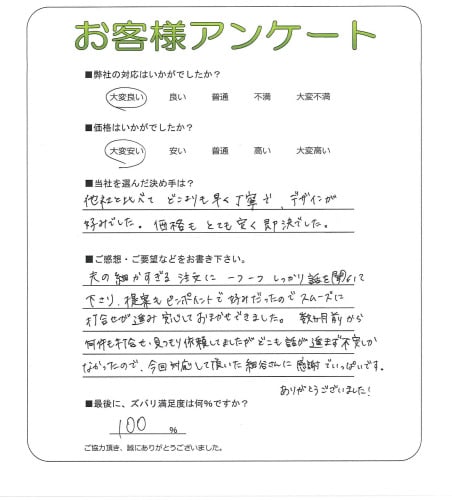 お客様アンケート
■弊社の対応はいかがでしたか？
大変良い 良い 普通 不満 大変不満
■価格はいかがでしたか？
大変安い 安い 普通 高い 大変高い
■当社を選んだ決め手は？
他社と比べて どこよりも早く丁寧で、デザインが
好みでした。価格も とても安く即決でした。
■ご感想・ご要望などをお書き下さい。
夫の細かすぎる注文に 一つ一つ しっかり話を聞いて
下さり、提案もピンポイントで好みだったのでスムーズに
打合せが進み安心しておまかせできました。 数ヶ月前から
何件も打合せ・見つもり依頼してましたがどこも話が進まず不安しか
なかったので、今回対応して頂いた細谷さんに感謝でいっぱいです。
ありがとうございました！
■最後に、ズバリ満足度は何%ですか？
100 %
ご協力頂き、誠にありがとうございました。